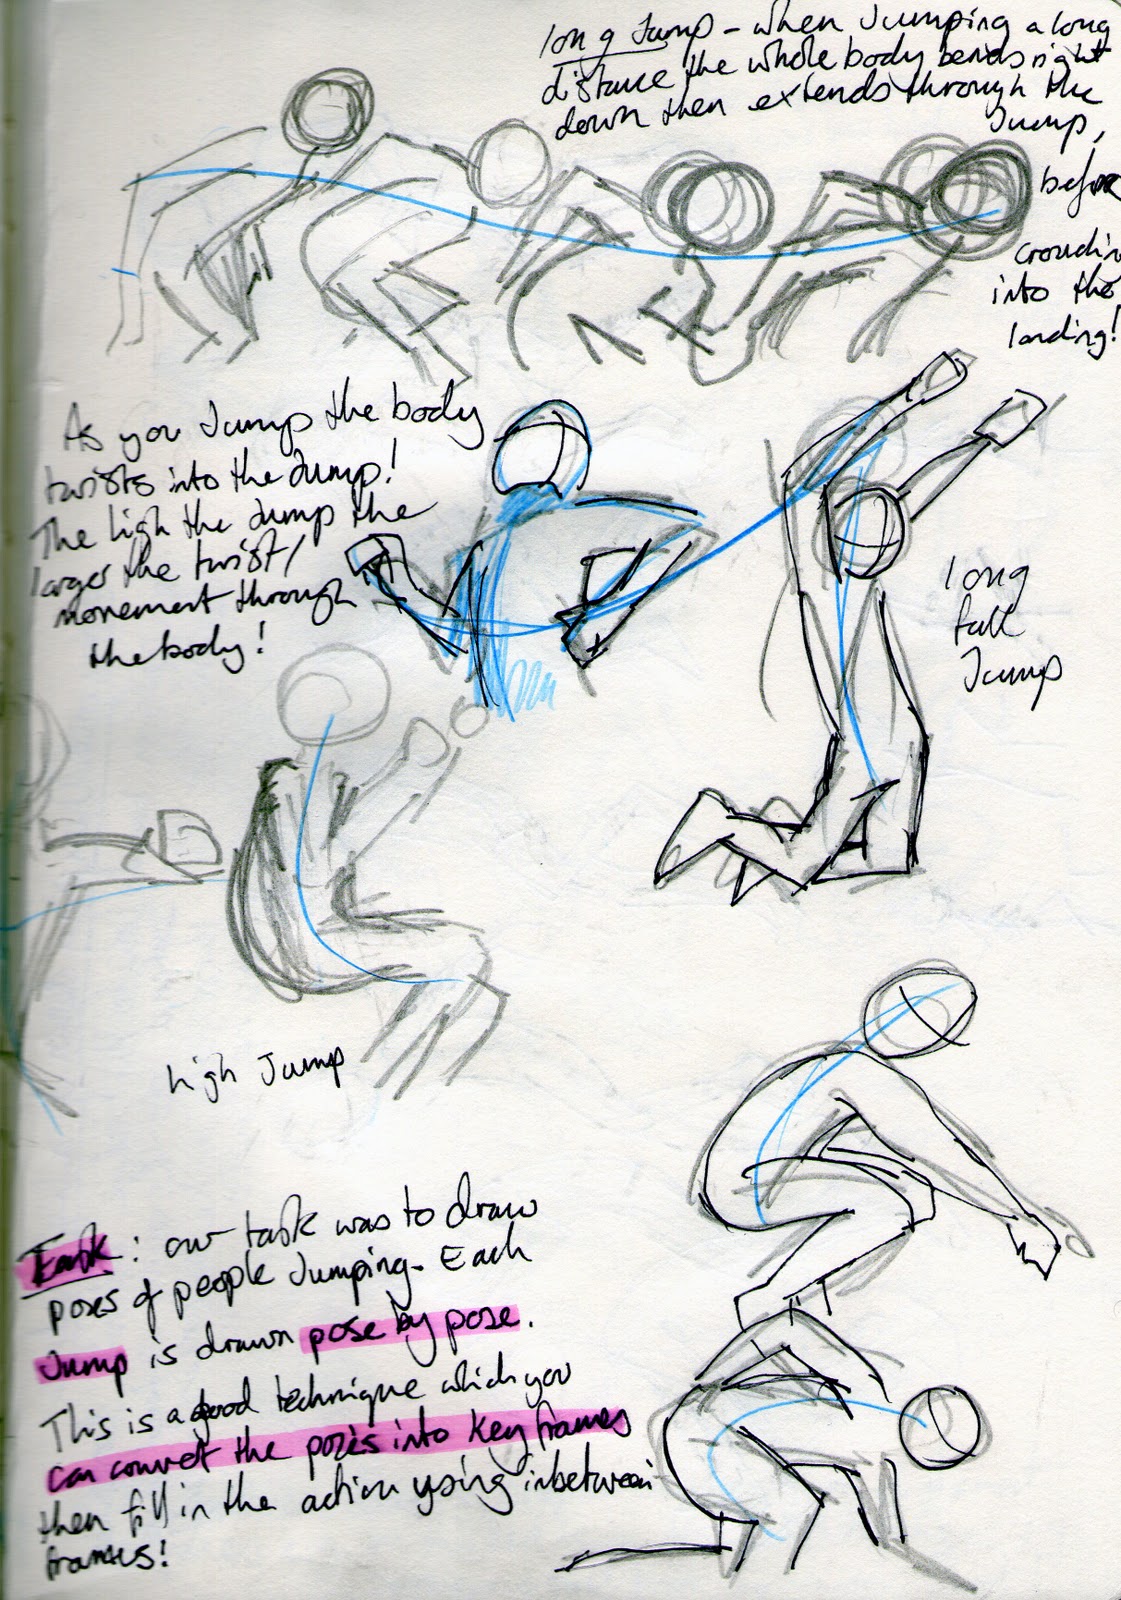 long Jump - when Jumping a long
distance the whole body bends right
down then extends through the
Jump,
before
crouching
into the
landing!
As you Jump the body
twists into the Jump!
The high the Jump the
larger the twist/
movement through
the body!
long
fall
Jump
high Jump
Task: our task was to draw
poses of people Jumping. Each
Jump is drawn pose by pose.
This is a good technique which you
can convert the poses into key frames
then fill in the action using inbetween
frames!